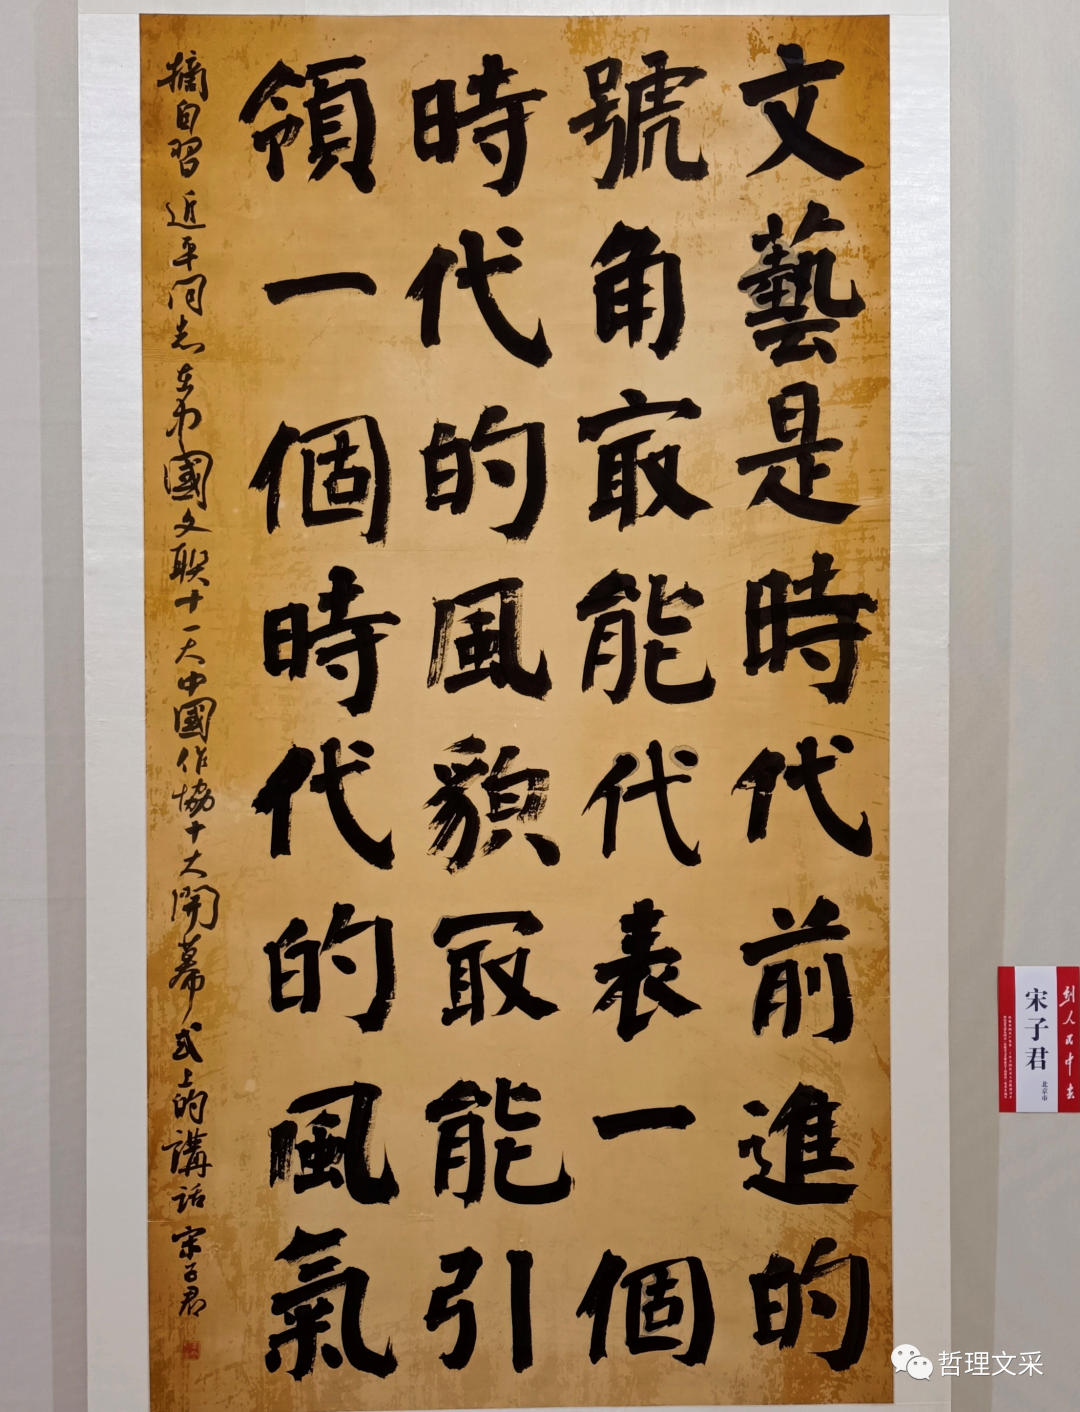 文藝是時代前進的
號角㝡能代表一個
時代的風貌冣能引
領一個時代的風氣
摘自習近平同志在中國文联十一大中國作協十大開幕式上的講話宋子君
到人民中去
宋子君
北京市
哲理文采